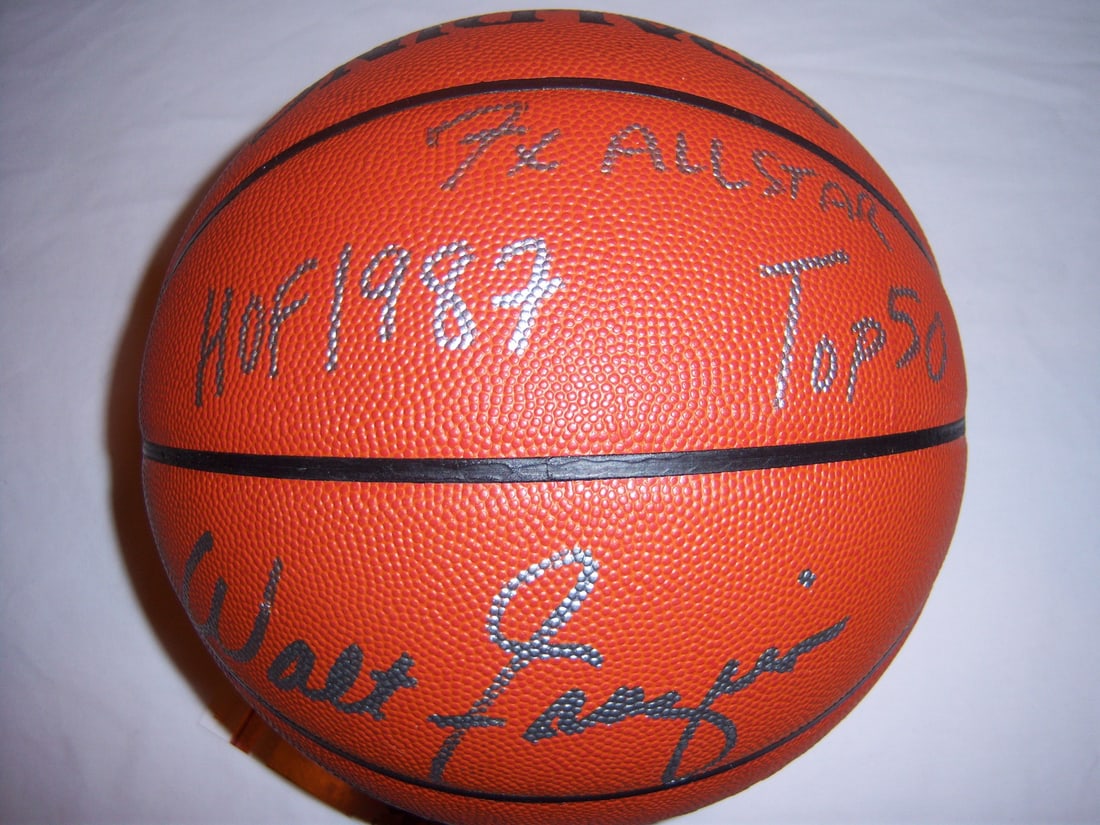 7x ALLSTAR
HOF 1987
Top 50
Walt Frazier